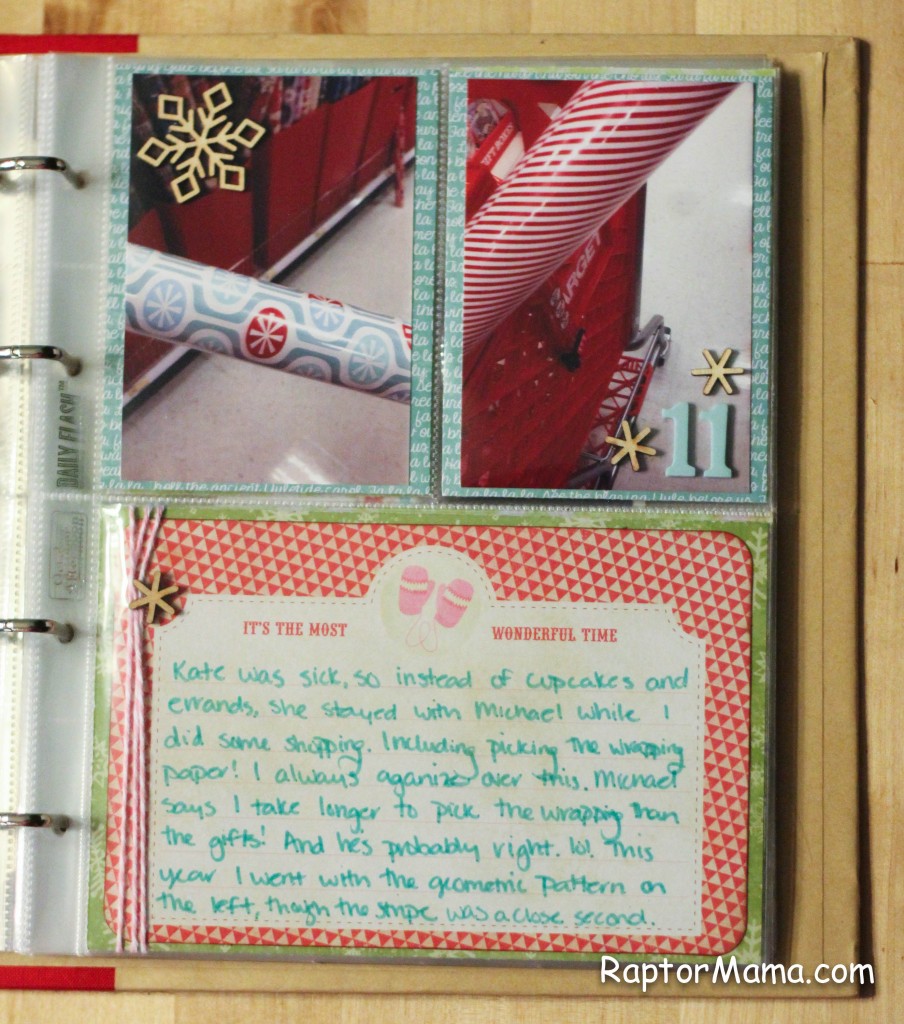 TARGET
11
DAILY FLASH™
IT'S THE MOST
WONDERFUL TIME
Kate was sick, so instead of cupcakes and
errands, she stayed with Michael while I
did some shopping. Including picking the wrapping
paper! I always aganize over this. Michael
says I take longer to pick the wrapping than
the gifts! And he's probably right. lol! This
year I went with the geometric pattern on
the left, though the stripe was a close second.
RaptorMama.com